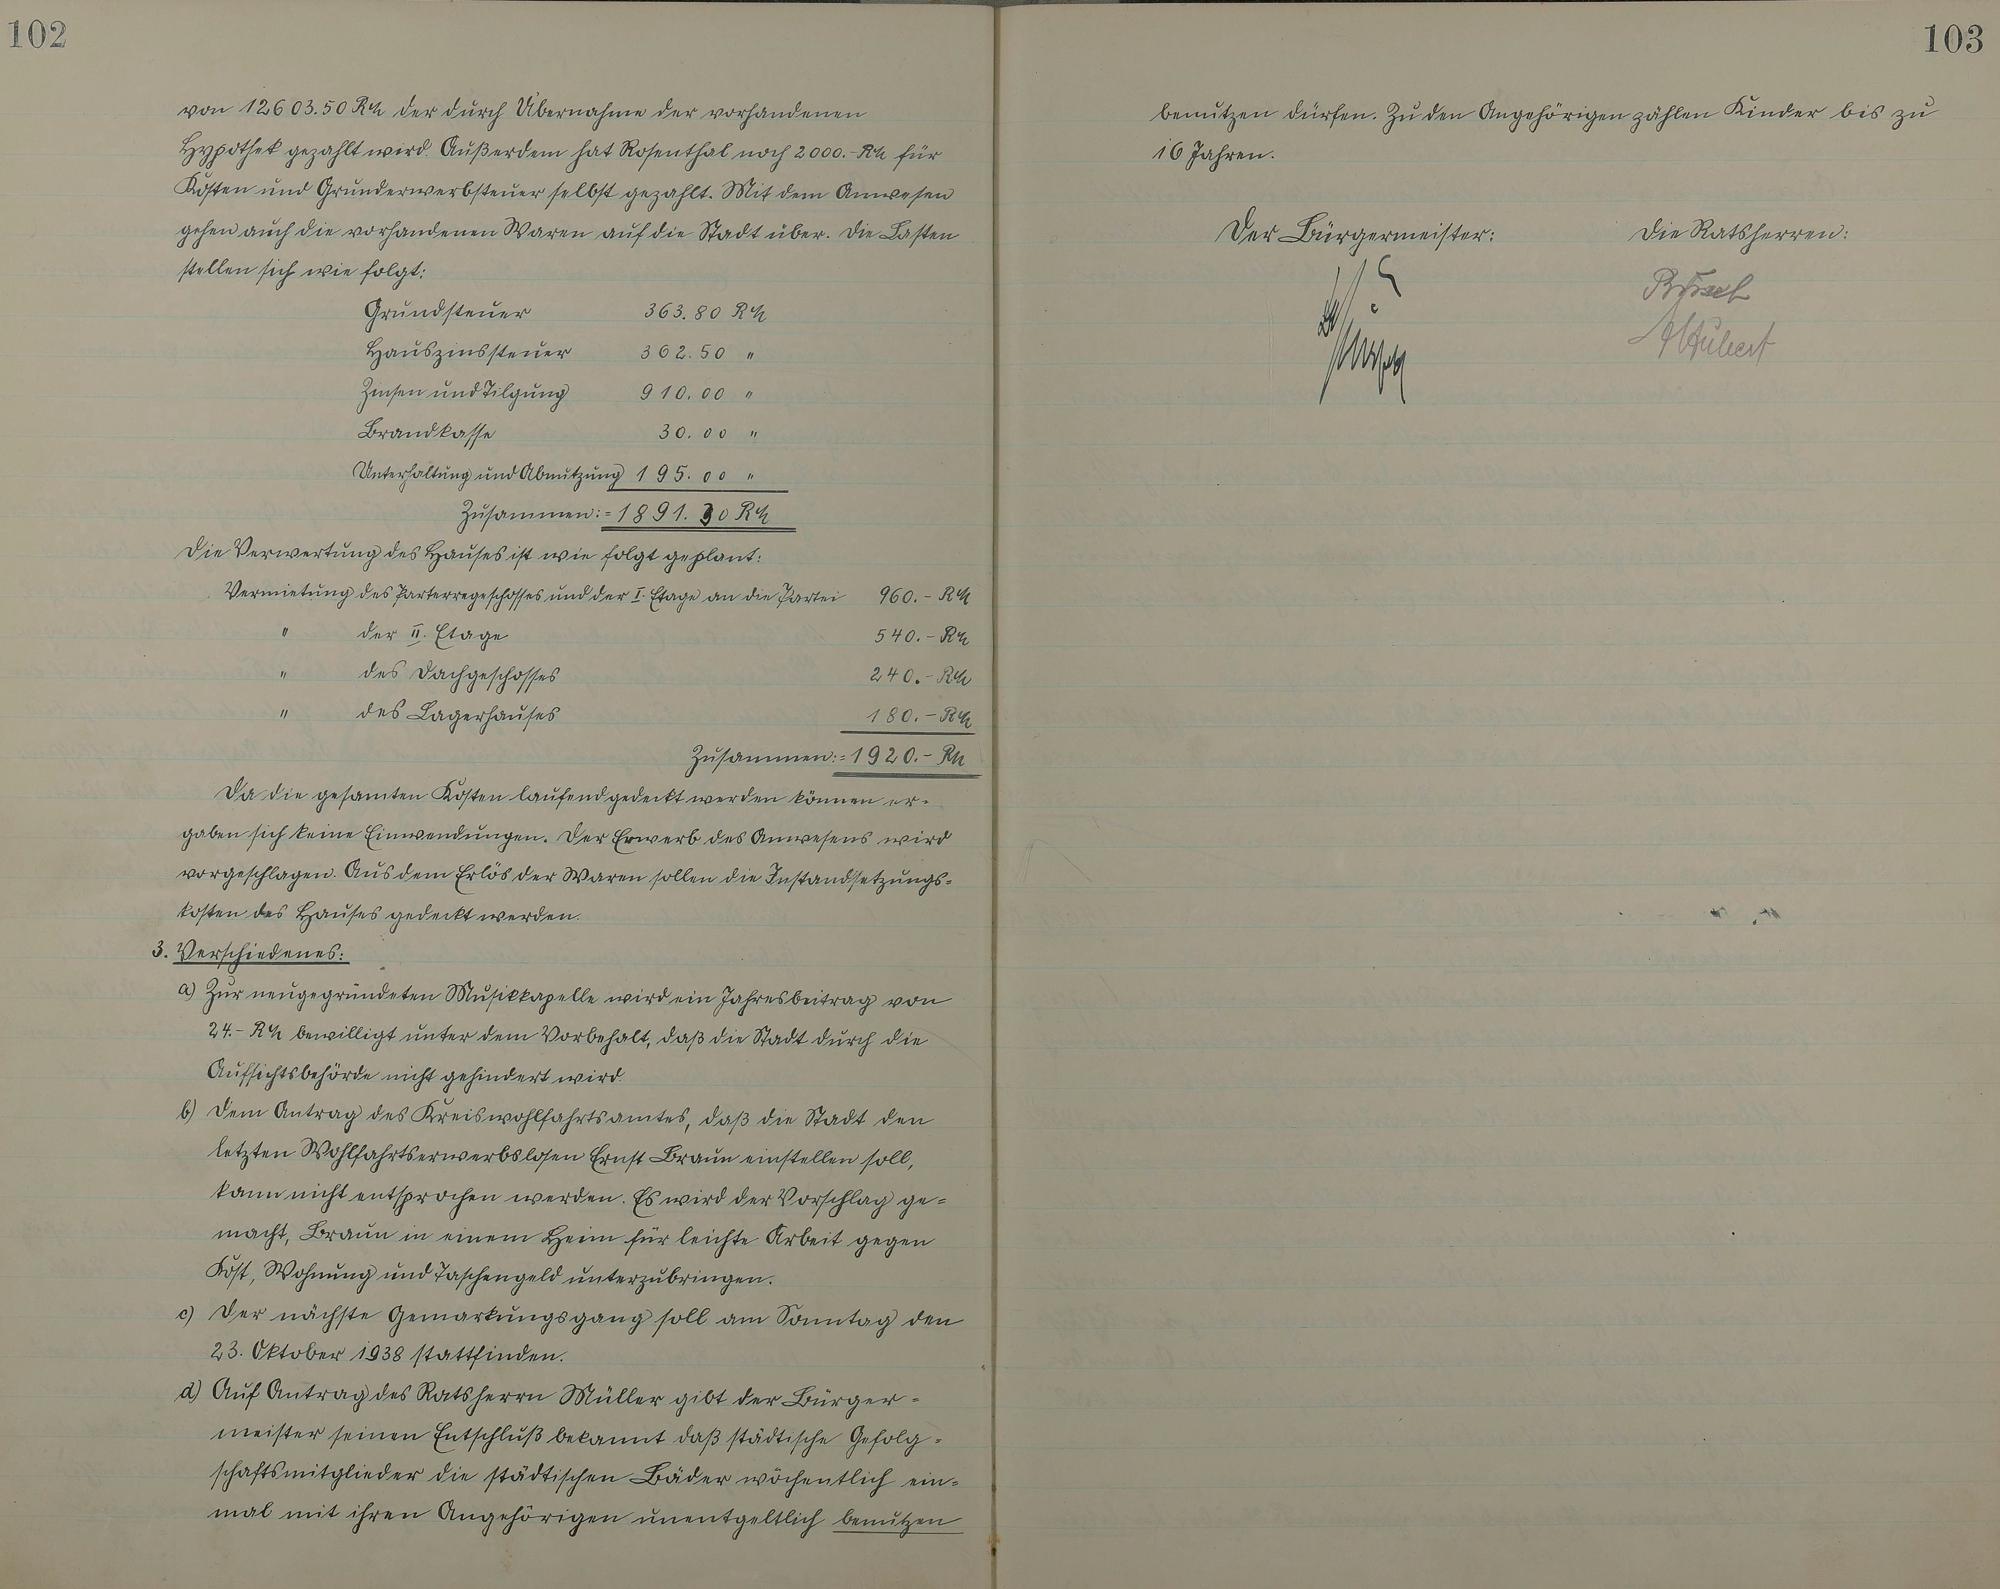 102
von 12603.50 RM der durch Übernahme der vorhandenen
Hypothek gezahlt wird. Außerdem hat Rosenthal noch 2000.- RM für
Kosten und Grunderwerbsteuer selbst gezahlt. Mit dem Anwesen
gehen auch die vorhandenen Waren auf die Stadt über. Die Lasten
stellen sich wie folgt:
Grundsteuer 363.80 RM
Hauszinssteuer 362.50 "
Zinsen und Tilgung 910.00 "
Brandkasse 30.00 "
Unterhaltung und Abnutzung 195.00 "
Zusammen:= 1891.30 RM
Die Verwertung des Hauses ist wie folgt geplant:
Vermietung des Parterregeschosses und der I. Etage an die Partei 960.- RM
" der II. Etage 540.- RM
" des Dachgeschosses 240.- RM
" des Lagerhauses 180.- RM
Zusammen:= 1920.- RM
Da die gesamten Kosten laufend gedeckt werden können er-
gaben sich keine Einwendungen. Der Erwerb des Anwesens wird
vorgeschlagen. Aus dem Erlös der Waren sollen die Instandsetzungs=
kosten des Hauses gedeckt werden.
3. Verschiedenes:
a) Zur neugegründeten Musikkapelle wird ein Jahresbeitrag von
24.- RM bewilligt unter dem Vorbehalt, daß die Stadt durch die
Aufsichtsbehörde nicht gehindert wird.
b) Dem Antrag des Kreiswohlfahrtsamtes, daß die Stadt den
letzten Wohlfahrtserwerbslosen Ernst Braun einstellen soll,
kann nicht entsprochen werden. Es wird der Vorschlag ge=
macht, Braun in einem Heim für leichte Arbeit gegen
Kost, Wohnung und Taschengeld unterzubringen.
c) Der nächste Gemarkungsgang soll am Sonntag den
23. Oktober 1938 stattfinden.
d) Auf Antrag des Ratsherrn Müller gibt der Bürger=
meister seinen Entschluß bekannt daß städtische Gefolg=
schaftsmitglieder die städtischen Bäder wöchentlich ein=
mal mit ihren Angehörigen unentgeltlich benutzen
103
benutzen dürfen. Zu den Angehörigen zählen Kinder bis zu
16 Jahren.
Der Bürgermeister: Die Ratsherren: